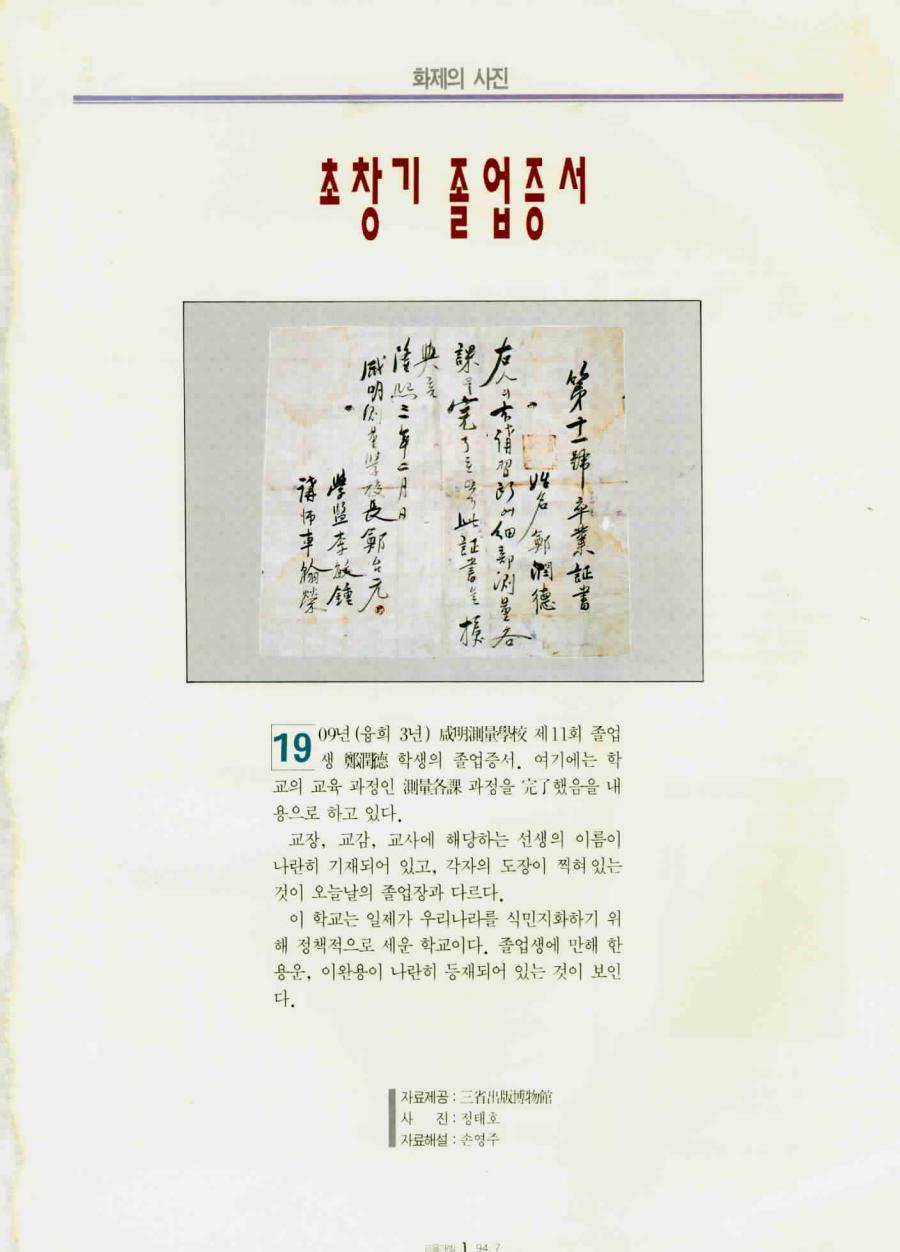 화제의 사진
초창기 졸업증서
第十一號 卒業証書
姓名 鄭潤德
右人의 古補習所에 細部測量各
課를 完了 此証書를 授
與 흠
隆熙三年二月 日
咸明測量學校長 鄭台元
學監 李敏鍾
講師 車翰榮
1909년(융희 3년) 咸明測量學校 제11회 졸업
생 鄭潤德 학생의 졸업증서. 여기에는 학
교의 교육 과정인 測量各課 과정을 完了했음을 내
용으로 하고 있다.
교장, 교감, 교사에 해당하는 선생의 이름이
나란히 기재되어 있고, 각자의 도장이 찍혀 있는
것이 오늘날의 졸업장과 다르다.
이 학교는 일제가 우리나라를 식민지화하기 위
해 정책적으로 세운 학교이다. 졸업생에 만해 한
용운, 이완용이 나란히 등재되어 있는 것이 보인
다.
자료제공 : 三省出版博物館
사 진 : 정태호
자료해설 : 손영주
1 94. 7